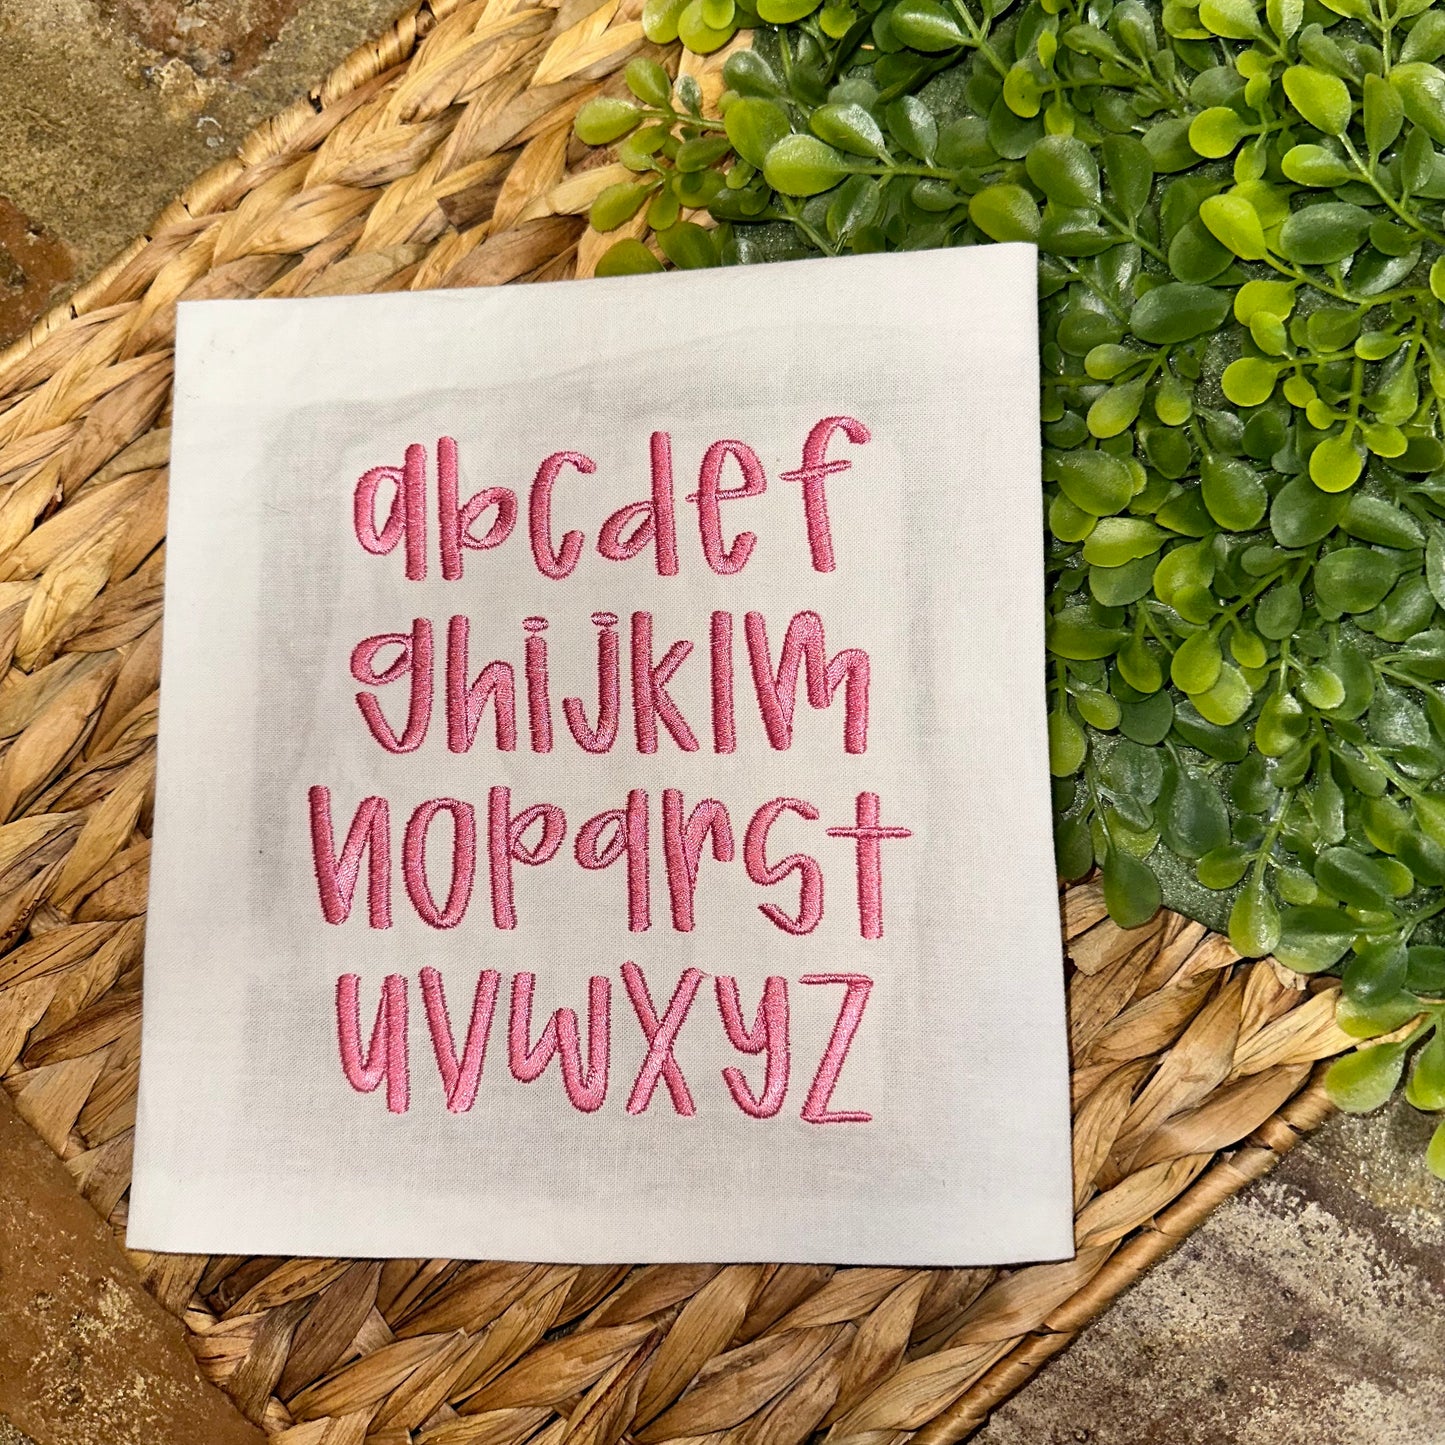 abcdef
ghijklm
nopqrst
uvwxyz